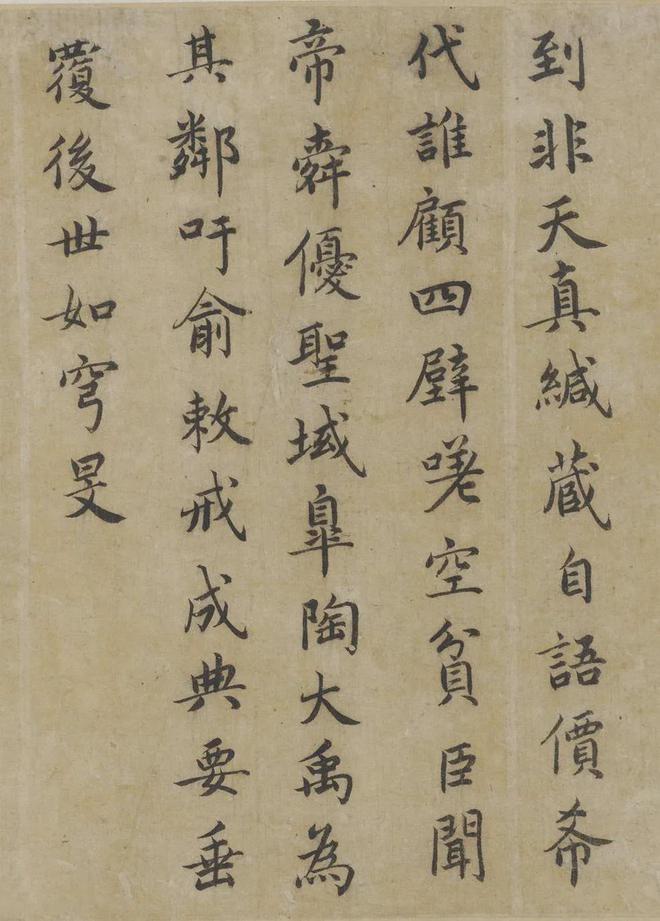 到非天真緘蔵自語價希
代誰顧四壁嗟空貧臣聞
帝舜優聖域皐陶大禹為
其鄰吁俞敕戒成典要垂
覆後世如穹旻